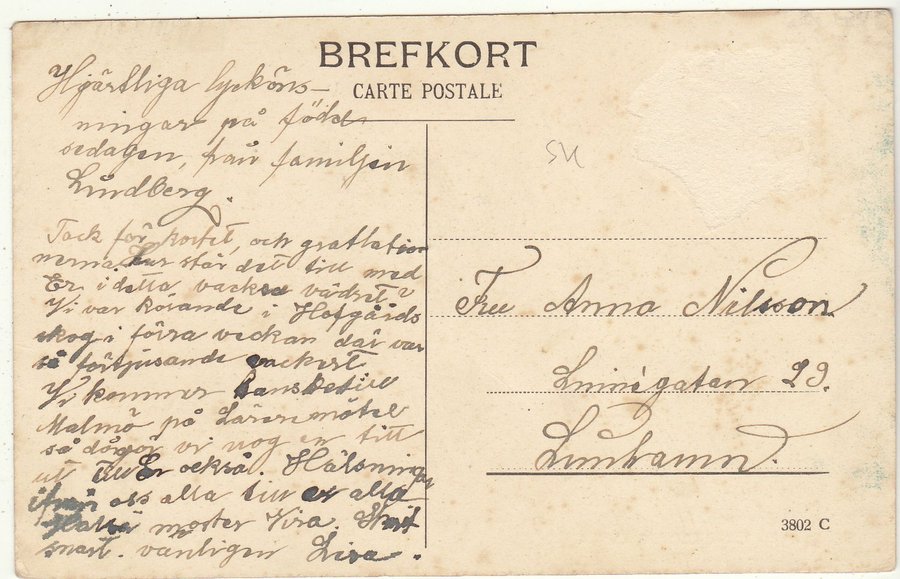 BREFKORT
CARTE POSTALE
Hjärtliga lycköns-
ningar på född
sedagen, från familjen
Lundberg.
Tack för kortet, och grattlation
nerna. Hur står det till med
Er i detta vackra vädret?
Vi var körande i Hofgårds
skog i förra veckan där var
så förtjusande vackert
Vi kommer kanske till
Malmö på Läraremötet
så vi nog en titt
ut till Er också. Hälsningar
ifrån oss alla till er alla
moster Kira. Skrif
snart. vänligen Lisa.
SH
Fru Anna Nilsson
Linnégatan 29.
Limhamn.
3802 C